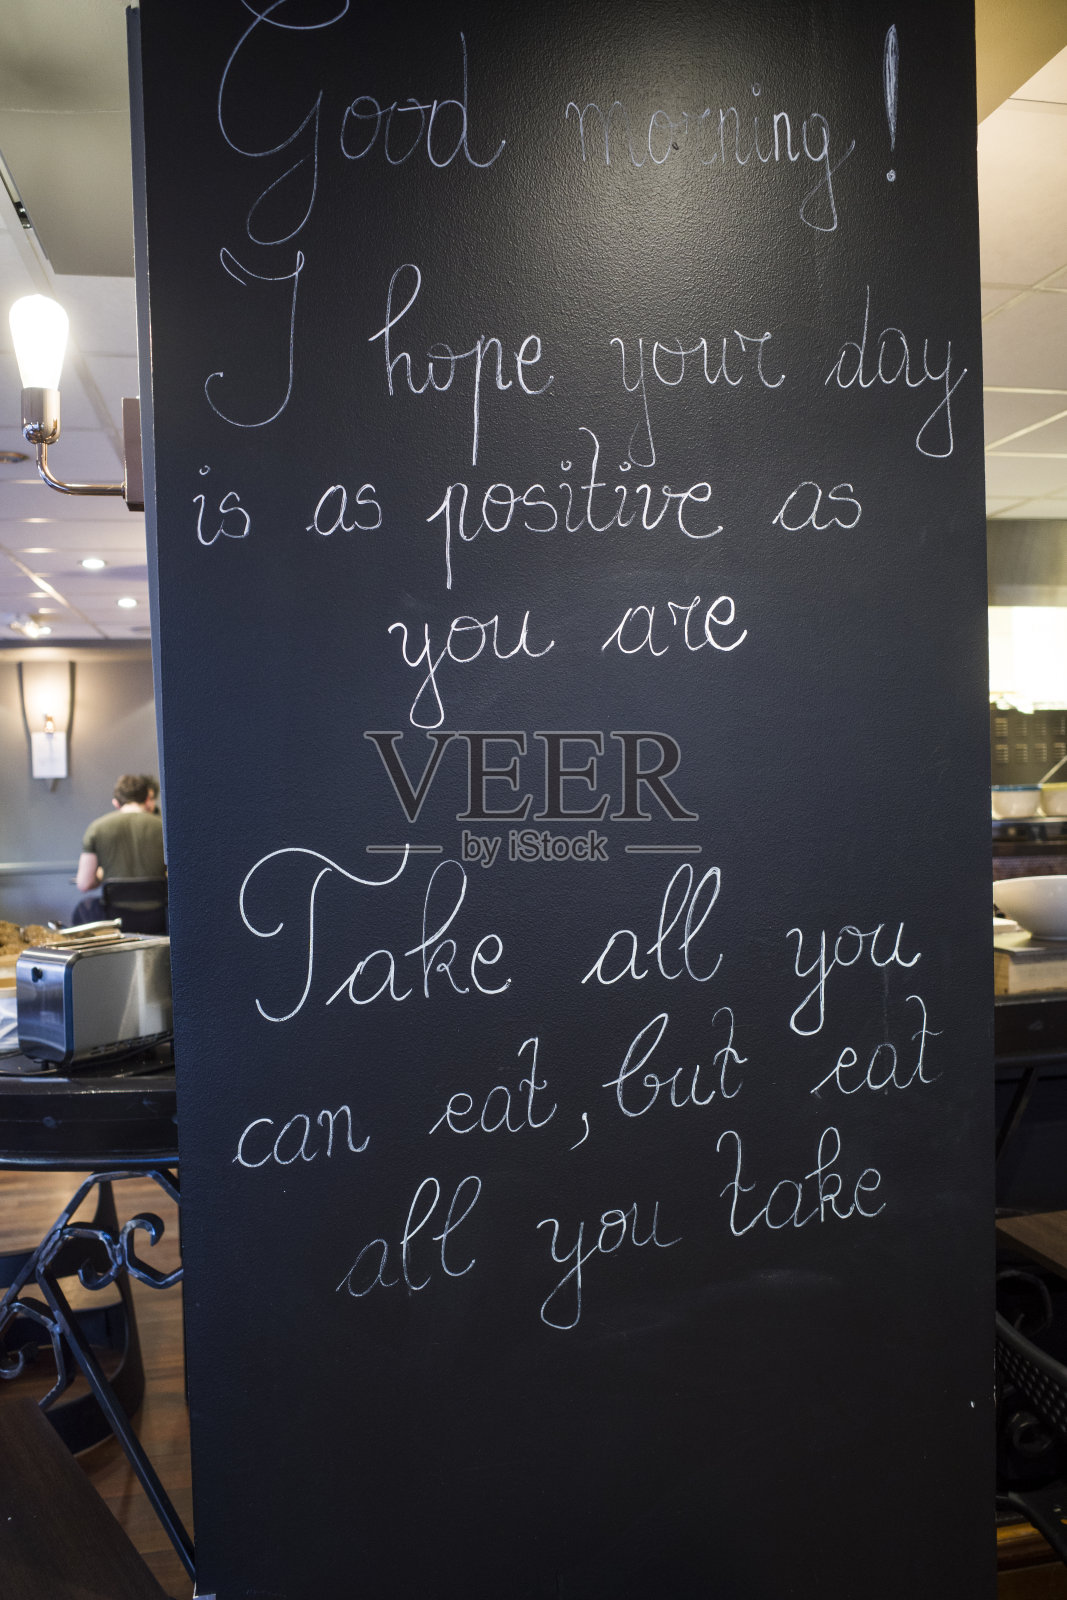 Good morning!
I hope your day
is as positive as
you are
VEER
by iStock
Take all you
can eat, but eat
all you take